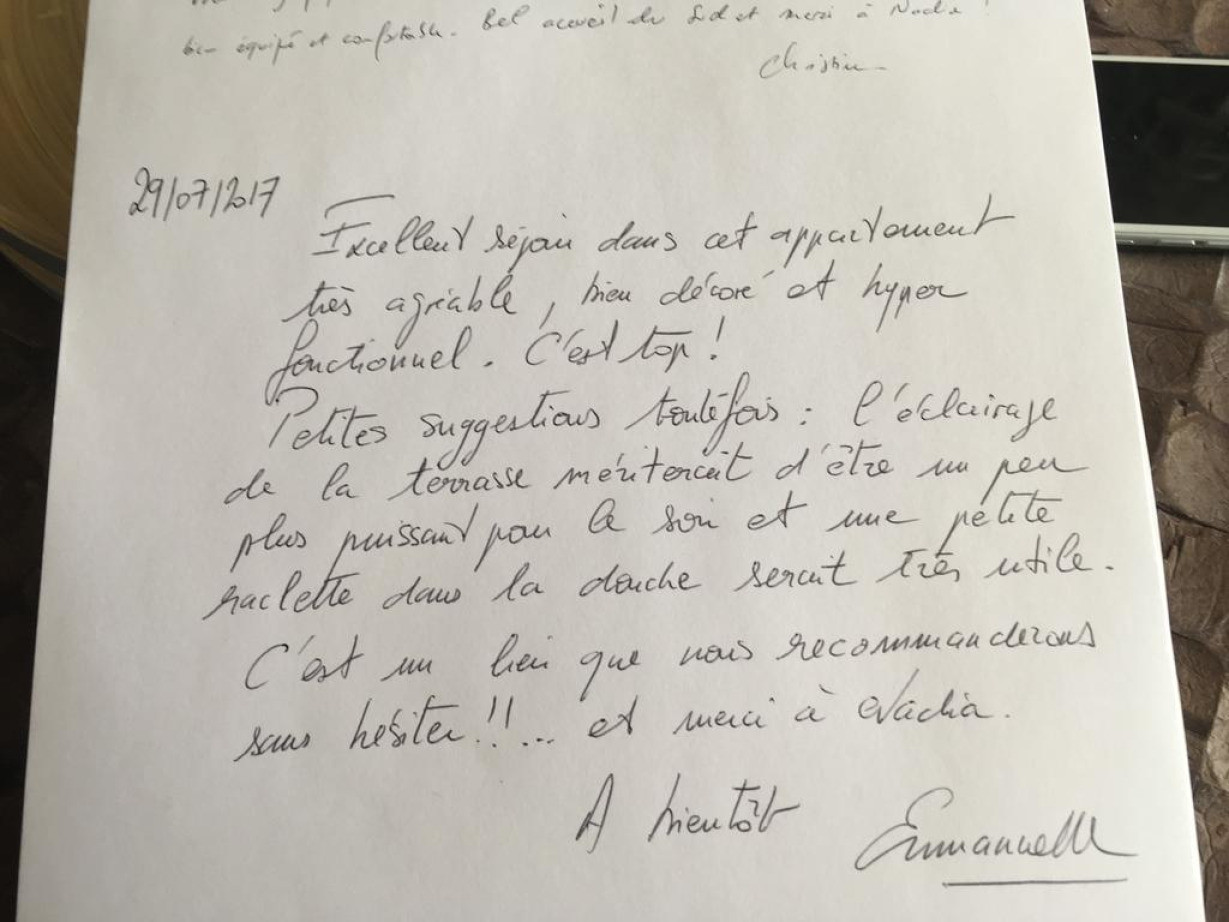 bien équipé et confortable. Bel accueil du Sud et merci à Nadia !
Christine
29/07/2017
Excellent séjour dans cet appartement
très agréable, bien décoré et hyper
fonctionnel. C'est top !
Petites suggestions toutefois : l'éclairage
de la terrasse mériterait d'être un peu
plus puissant pour le soir et une petite
raclette dans la douche serait très utile.
C'est un lieu que nous recommanderons
sans hésiter !!... et merci à Nadia.
A bientôt
Emmanuelle